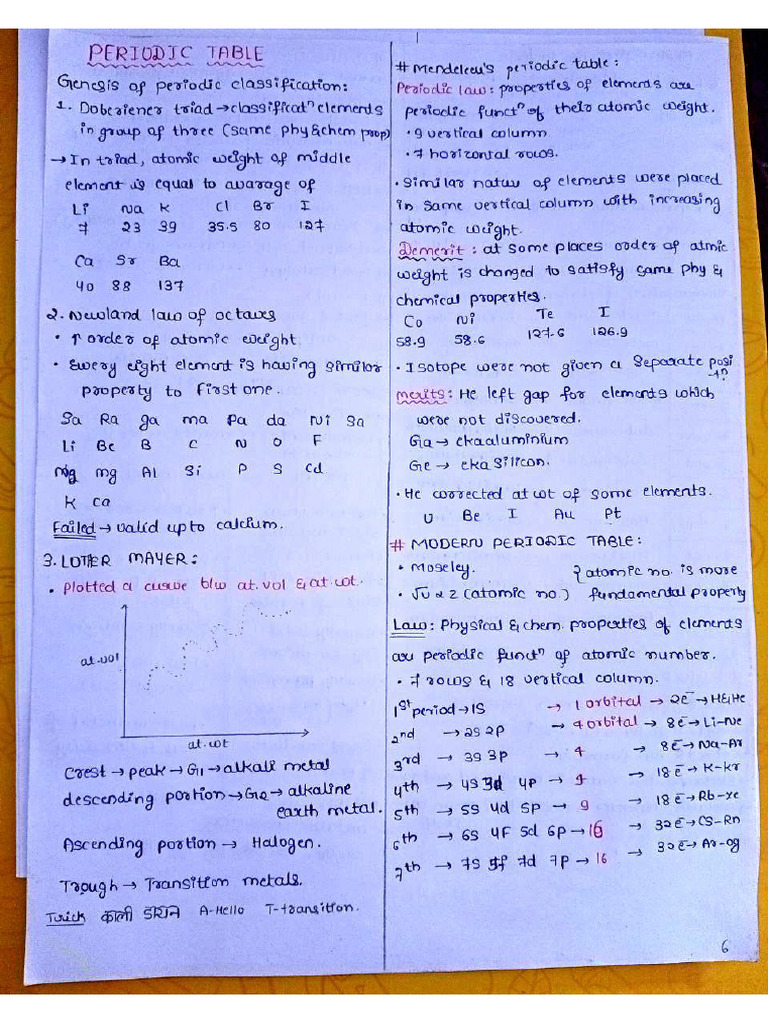 PERIODIC TABLE
Genesis of periodic classification:
1. Doberiener triad → classificatⁿ elements
in group of three (same phy & chem prop)
→ In triad, atomic weight of middle
element is equal to avarage of
Li Na K Cl Br I
7 23 39 35.5 80 127
Ca Sr Ba
40 88 137
2. Newland law of octaves
• ↑ order of atomic weight
• Every eight element is having similar
property to first one.
Sa Ra ga ma Pa da Ni Sa
Li Be B C N O F
mg Al Si P S Cd
K Ca
Failed → valid upto calcium.
3. LOTHER MAYER:
• Plotted a curve b/w at. vol & at. wt.
at. vol
at. wt
Crest → peak → G1 → alkali metal
descending portion → G2 → alkaline
earth metal.
Ascending portion → Halogen.
Trough → Transition metals.
Trick काली डायन A-Hello T-transition.
# Mendeleeu's periodic table:
Periodic law: properties of elements are
periodic functⁿ of their atomic weight.
• 9 vertical column
• 7 horizontal rows.
• Similar natur of elements were placed
in same vertical column with increasing
atomic weight.
Demerit: at some places order of atmic
weight is changed to satisfy same phy &
chemical properties.
Co Ni Te I
58.9 58.6 127.6 126.9
• Isotope were not given a separate posi
→?
merits: He left gap for elements which
were not discovered.
Ga → ekaaluminium
Ge → eka silicon.
• He corrected at wt of some elements.
U Be I Au Pt
# MODERN PERIODIC TABLE:
• Moseley. } atomic no. is more
• √υ α Z (atomic no.) fundamental property
Law: Physical & chem. properties of elements
are periodic functⁿ of atomic number.
• 7 rows & 18 vertical column.
1st period → 1S → 1 orbital → 2e⁻ → H & He
2nd → 2S 2P → 4 orbital → 8e⁻ → Li-Ne
3rd → 3S 3P → 4 → 8e⁻ → Na-Ar
4th → 4S 3d 4P → 9 → 18e⁻ → K-Kr
5th → 5S 4d 5P → 9 → 18e⁻ → Rb-xe
6th → 6S 4F 5d 6P → 16 → 32e⁻ → CS-Rn
7th → 7S 5f 7d 7P → 16 → 32e⁻ → Ar-og
6